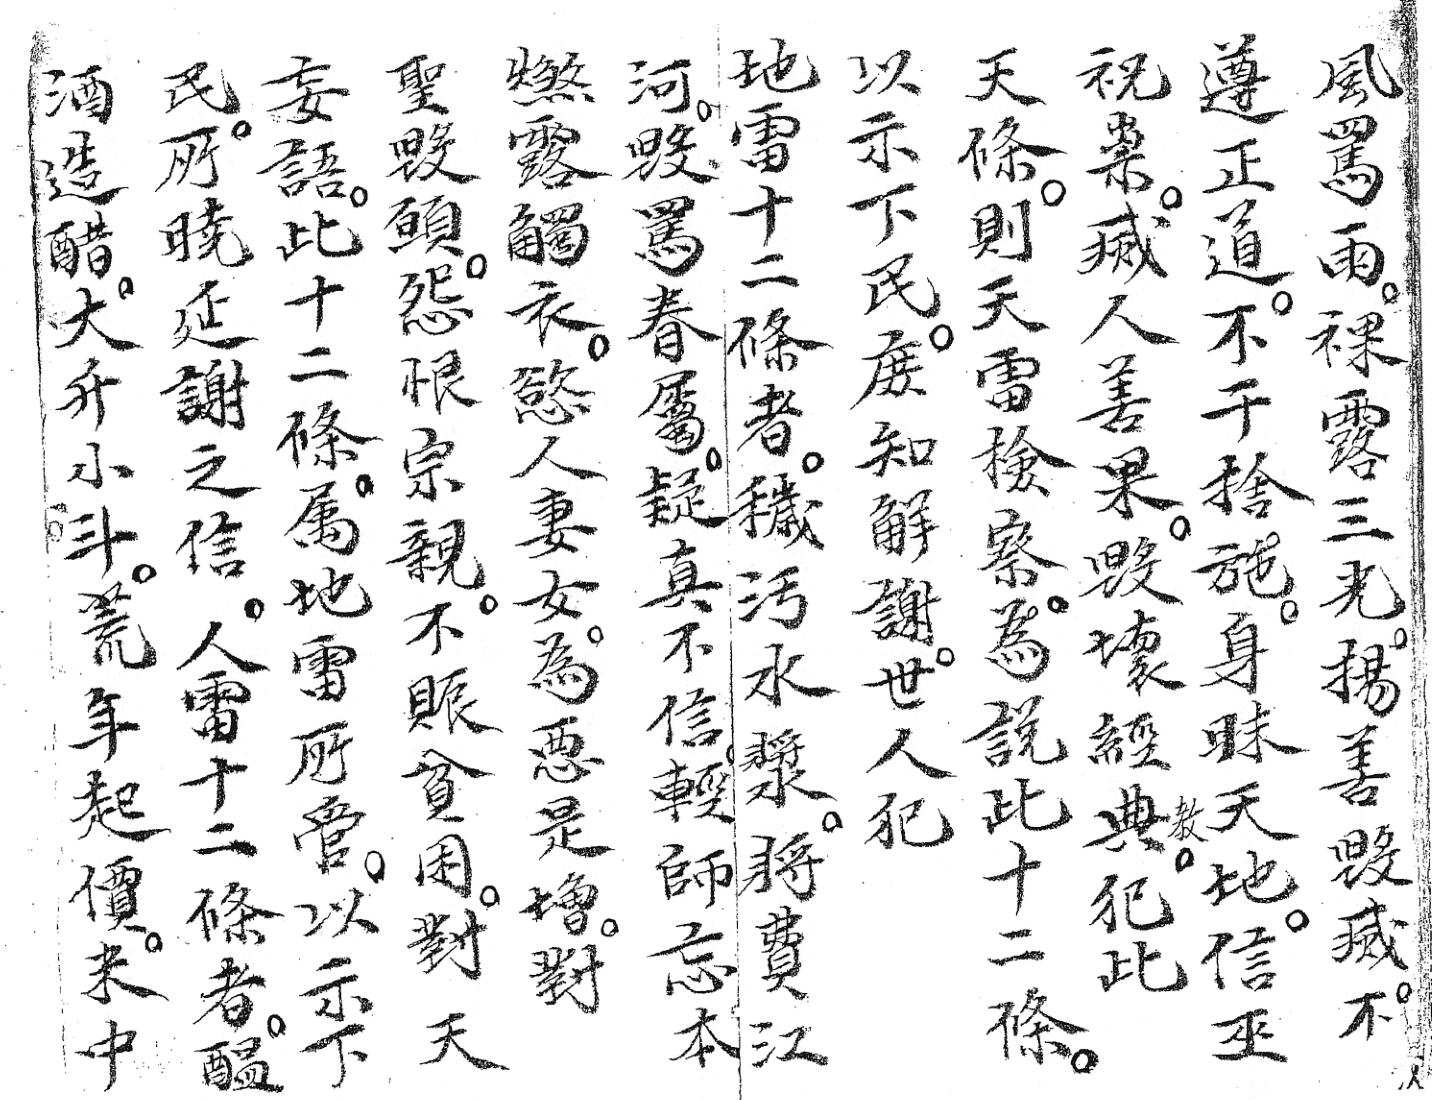 風罵雨。裸露三光。揚善毀滅。不
遵正道。不干捨施。身昧天地。信巫
祝素。滅人善果。毀壞經典教。犯此
天條。則天雷檢察。為說此十二條。
以示下民。庶知解謝。世人犯
地雷十二條者。穢污水漿。捋費江
河。毀罵眷屬。疑真不信。輕師忘本
燃露觸衣。慾人妻女。為惡是增。對
聖毀願。怨恨宗親。不賑貧困。對天
妄語。此十二條。属地雷所管。以示下
民。所曉延謝之信。人雷十二條者。醖
酒造醋。大升小斗。荒年起價。米中